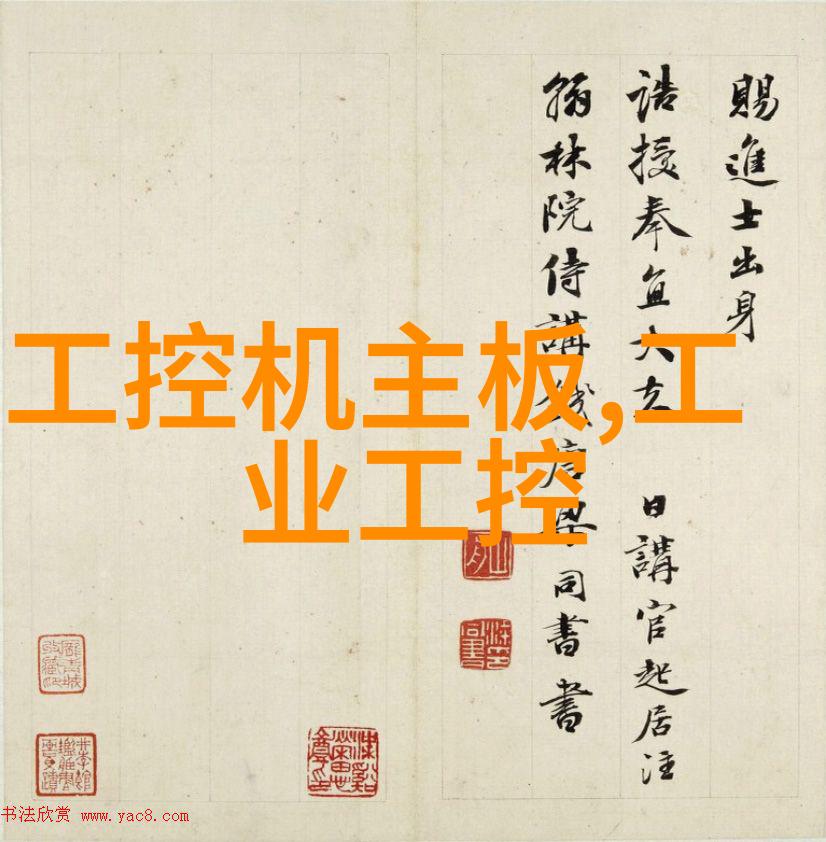 工控机主板,工
业工控
賜進士出身
誥授奉直大夫 日講官起居注
翰林院侍講錢唐梁同書書
书法欣赏 www.yac8.com